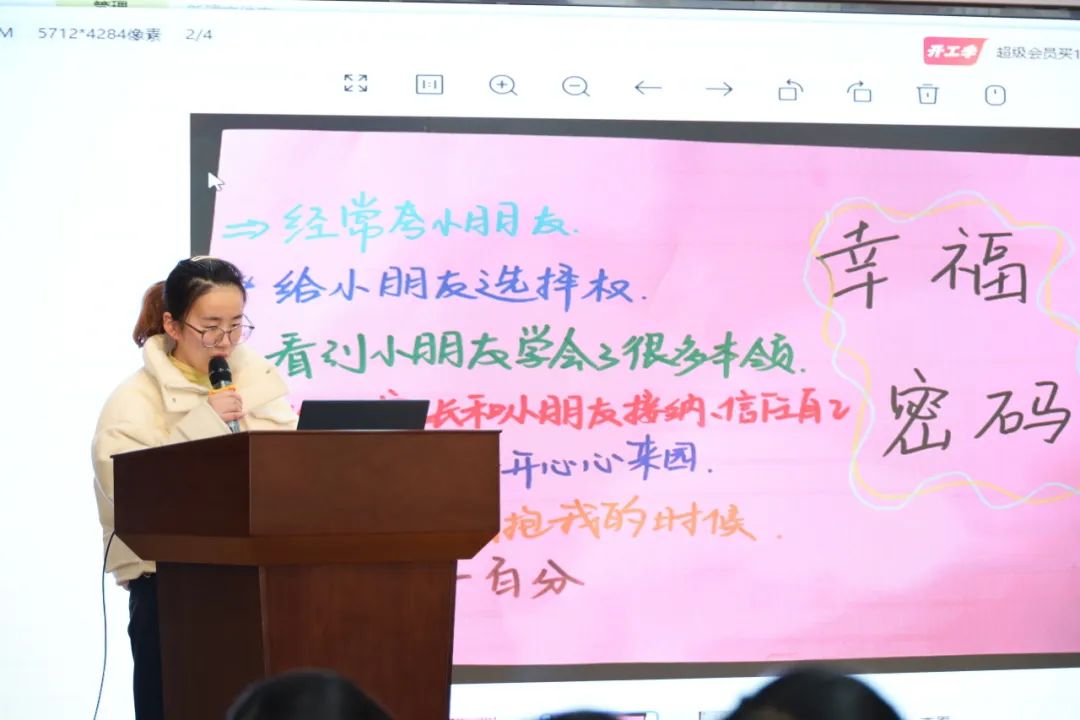 管理
M 5712*4284像素 2/4
开工季 超级会员买1
1:1
⇒ 经常夸小朋友.
给小朋友选择权.
看到小朋友学会了很多本领.
长和小朋友接纳、信任自己
开心心来园.
抱我的时候.
一百分
幸福
密码